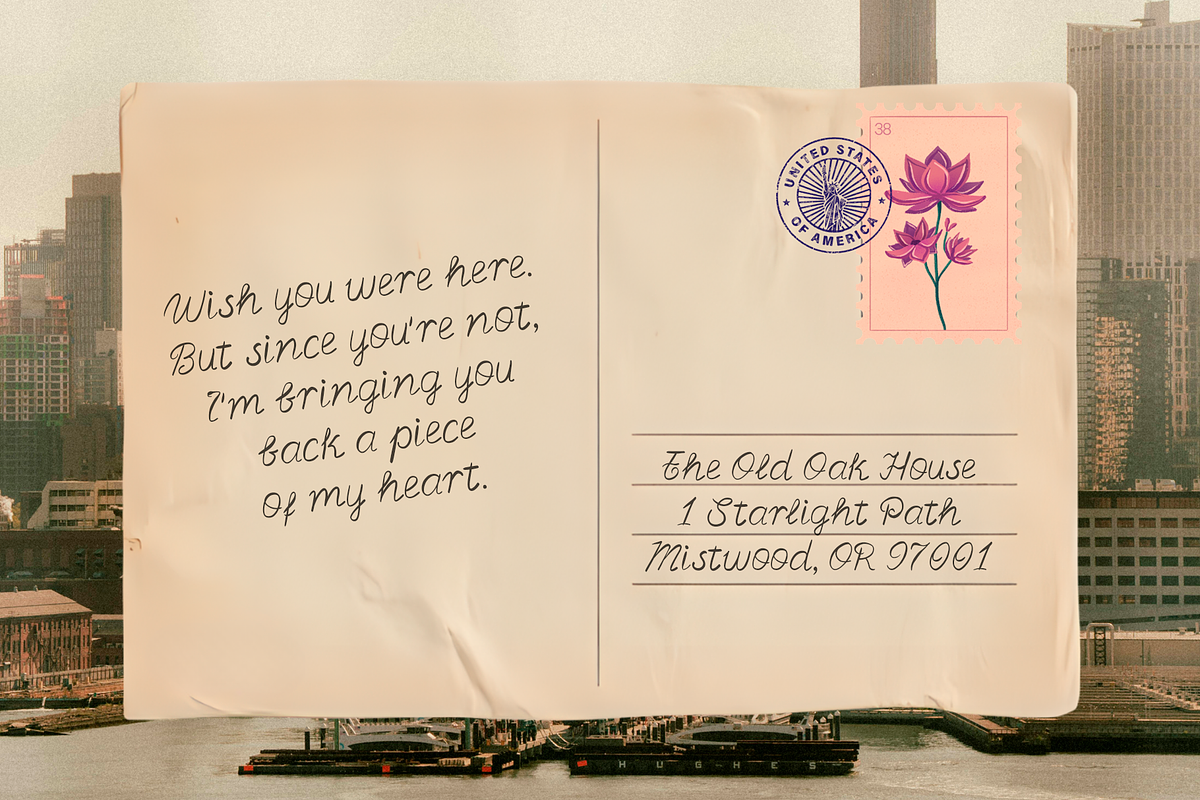 Wish you were here.
But since you're not,
I'm bringing you
back a piece
of my heart.
38
UNITED STATES
OF AMERICA
The Old Oak House
1 Starlight Path
Mistwood, OR 97001
HUGHES